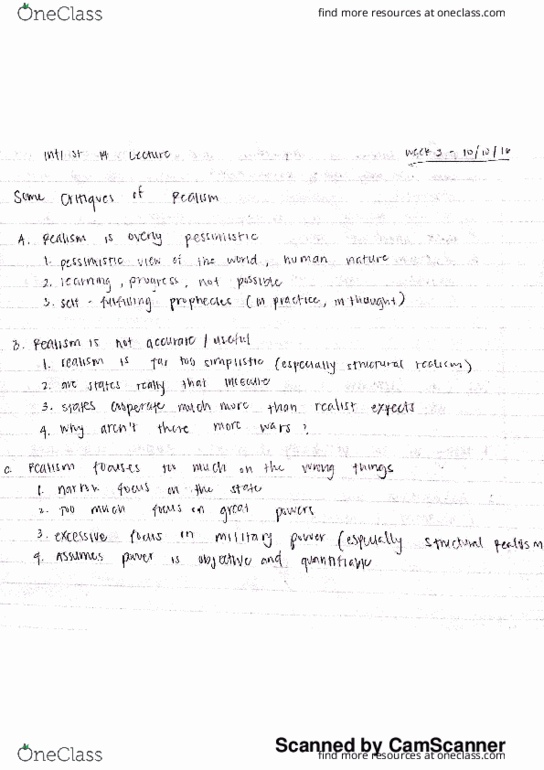 OneClass
find more resources at oneclass.com
Intl st 14 Lecture
Week 3 - 10/10/18
Some Critiques of Realism
A. Realism is overly pessimistic
1. pessimistic view of the world, human nature
2. learning, progress, not possible
3. self-fulfilling prophecies (in practice, in thought)
B. Realism is not accurate / useful
1. realism is far too simplistic (especially structural realism)
2. are states really that insecure
3. states cooperate much more than realist expects
4. why aren't there more wars?
C. Realism focuses too much on the wrong things
1. narrow focus on the state
2. too much focus on great powers
3. excessive focus on military power (especially structural realism
4. Assumes power is objective and quantifiable
Scanned by CamScanner
OneClass
find more resources at oneclass.com